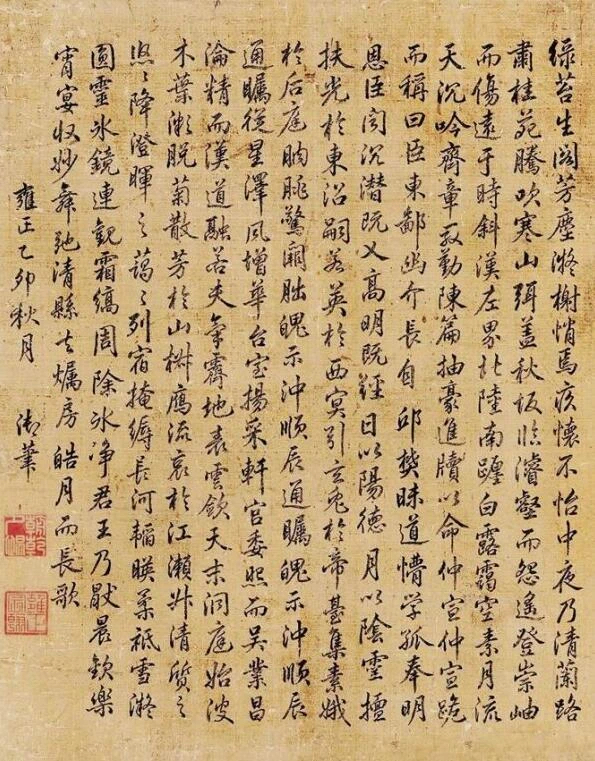 綠苔生閣芳塵凝榭悄焉疚懷不怡中夜乃清蘭路
肅桂苑騰吹寒山弭蓋秋坂臨濬壑而怨遙登崇岫
而傷遠于時斜漢左界北陸南躔白露靄空素月流
天沉吟齊章殷勤陳篇抽豪進牘以命仲宣仲宣跪
而稱曰臣東鄙幽介長自邱樊昧道懵學孤奉明
恩臣聞沉潛既乂高明既經日以陽德月以陰靈擅
扶光於東沼嗣若英於西冥引玄兔於帝臺集素娥
於后庭朒脁驚闕朏魄示沖順辰通矚魄示沖順辰
通矚從星澤風增華台室揚采軒宮委照而吳業昌
淪精而漢道融若夫氣霽地表雲歛天末洞庭始波
木葉漸脫菊散芳於山椒鴈流哀於江瀨升清質之
悠々降澄暉之藹々列宿掩縟長河韜映柔祇雪凝
圓靈水鏡連觀霜縞周除冰淨君王乃厭晨歡樂
宵宴收妙舞弛清縣去燭房皓月而長歌
雍正乙卯秋月 御筆